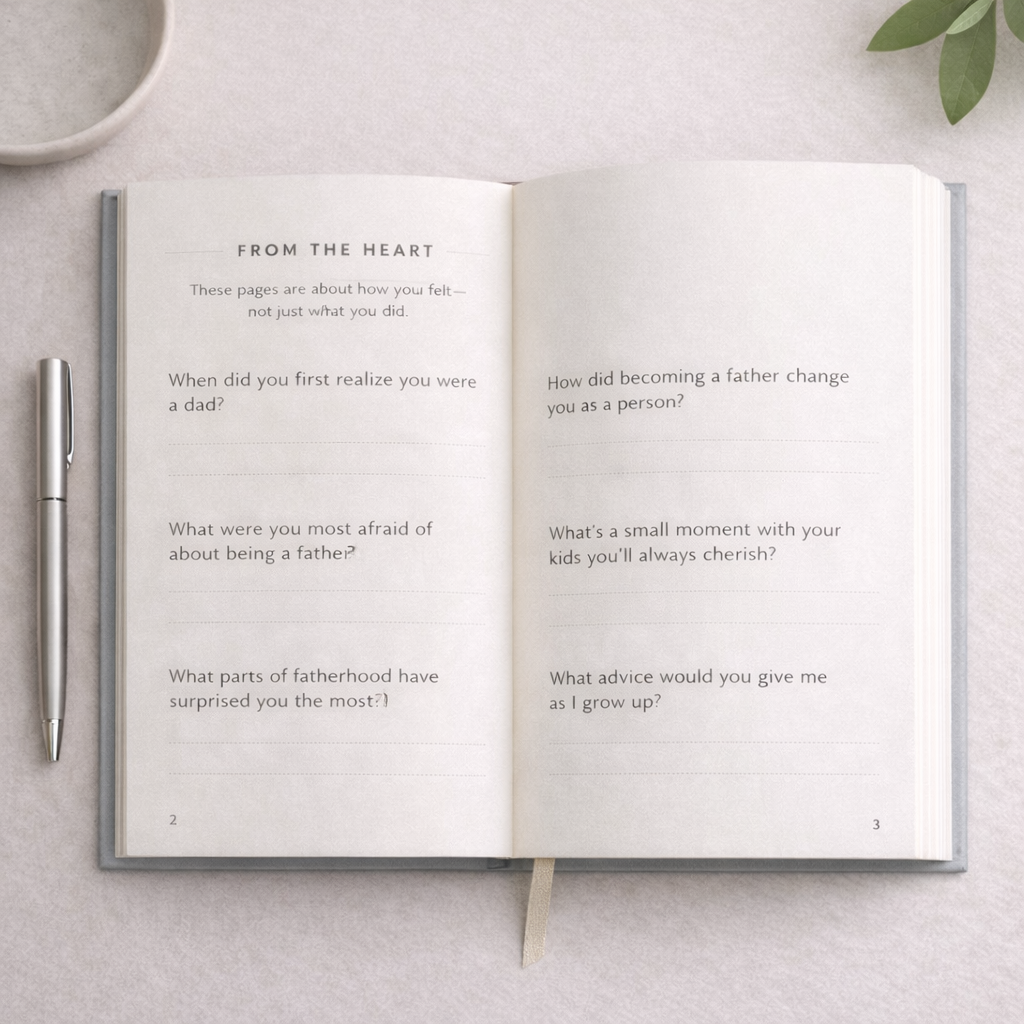 FROM THE HEART
These pages are about how you felt—
not just what you did.
When did you first realize you were
a dad?
What were you most afraid of
about being a father?
What parts of fatherhood have
surprised you the most?)
2
How did becoming a father change
you as a person?
What's a small moment with your
kids you'll always cherish?
What advice would you give me
as I grow up?
3